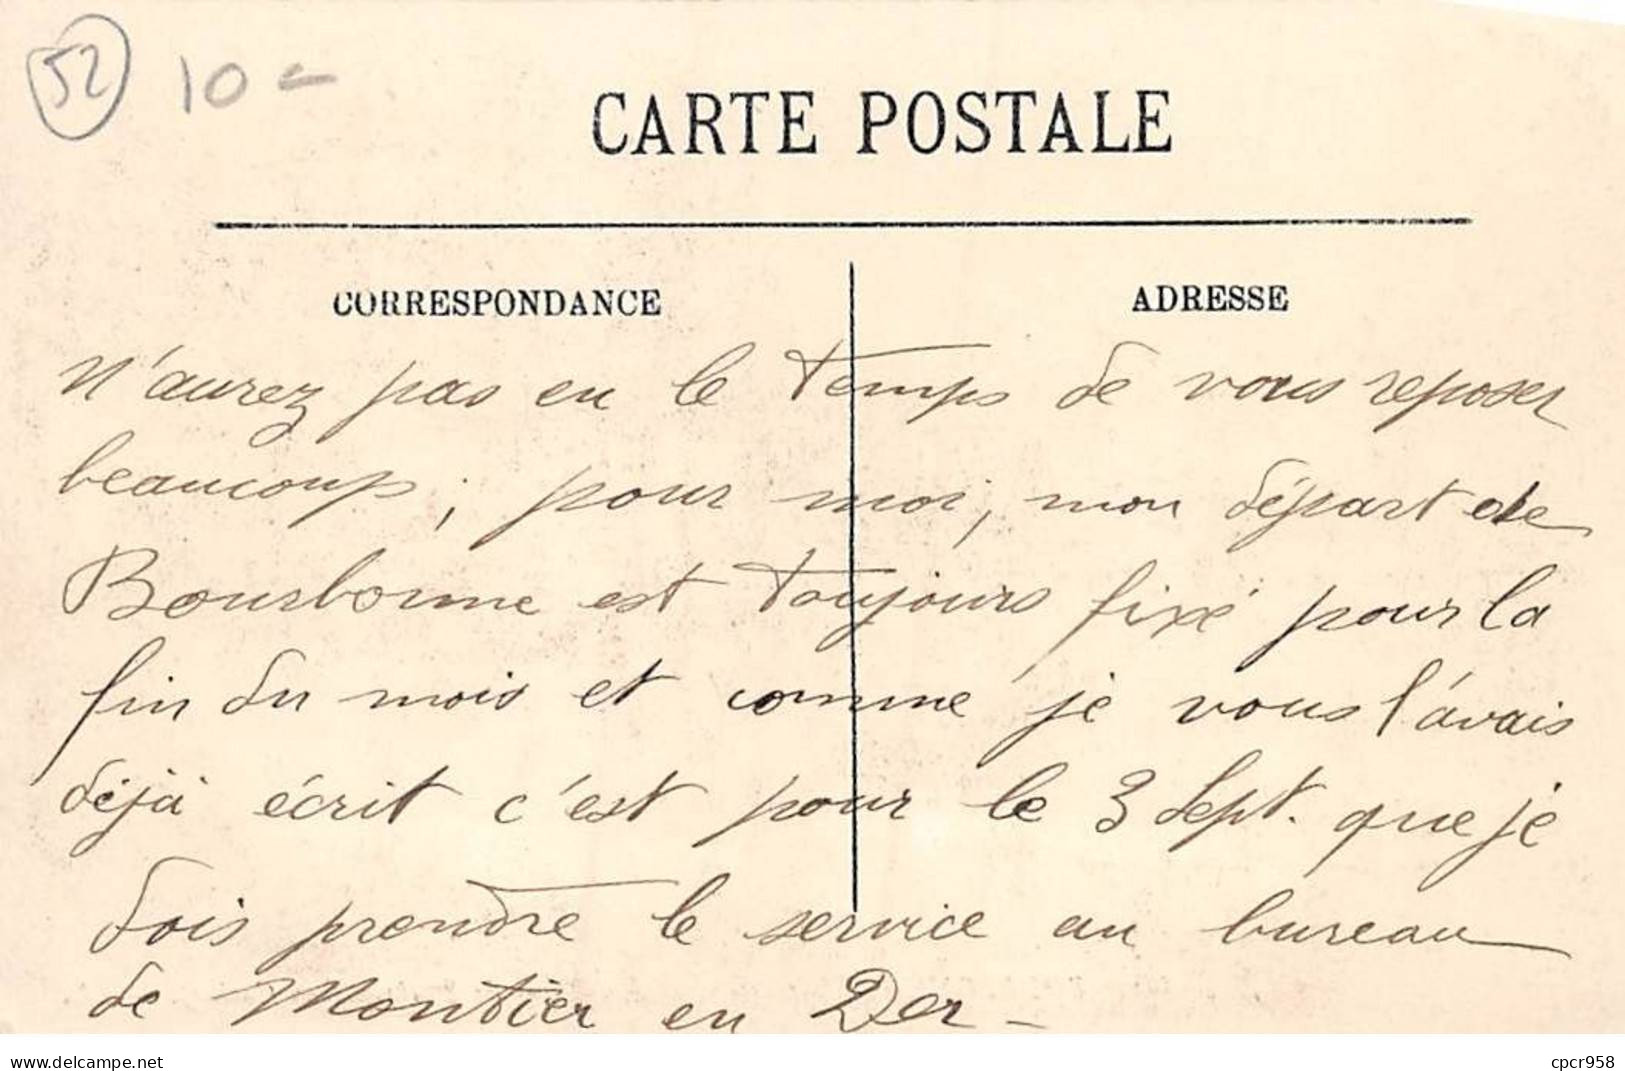 52 10 -
CARTE POSTALE
CORRESPONDANCE
ADRESSE
n'aurez pas eu le temps de vous reposer
beaucoup ; pour moi, mon départ de
Bourbonne est toujours fixé pour la
fin du mois et comme je vous l'avais
déjà écrit c'est pour le 3 Sept. que je
dois prendre le service au bureau
de Montier en Der -
www.delcampe.net
cpcr958